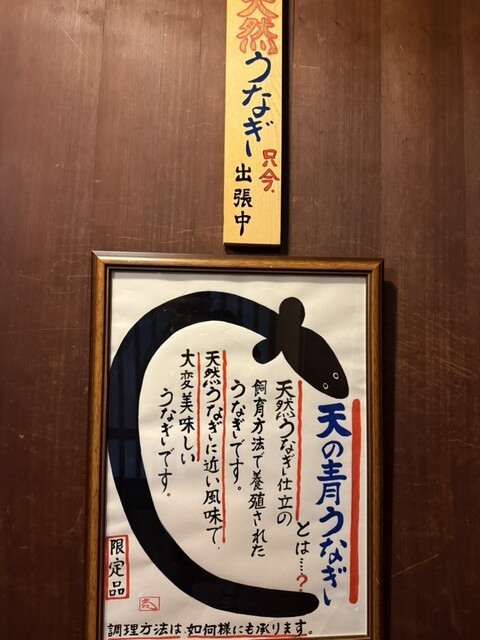 天然うなぎ
只今、
出張中
天の青うなぎ
とは……?
天然うなぎ仕立の
飼育方法で養殖された
うなぎです。
天然うなぎに近い風味で
大変美味しい
うなぎです。
限定品
調理方法は、如何様にも承ります。